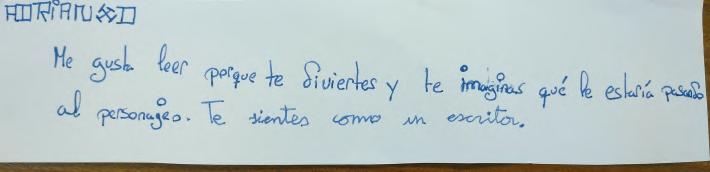 Me gusta leer porque te diviertes y te imaginas qué le estaría pasando
al personages. Te sientes como un escritor.